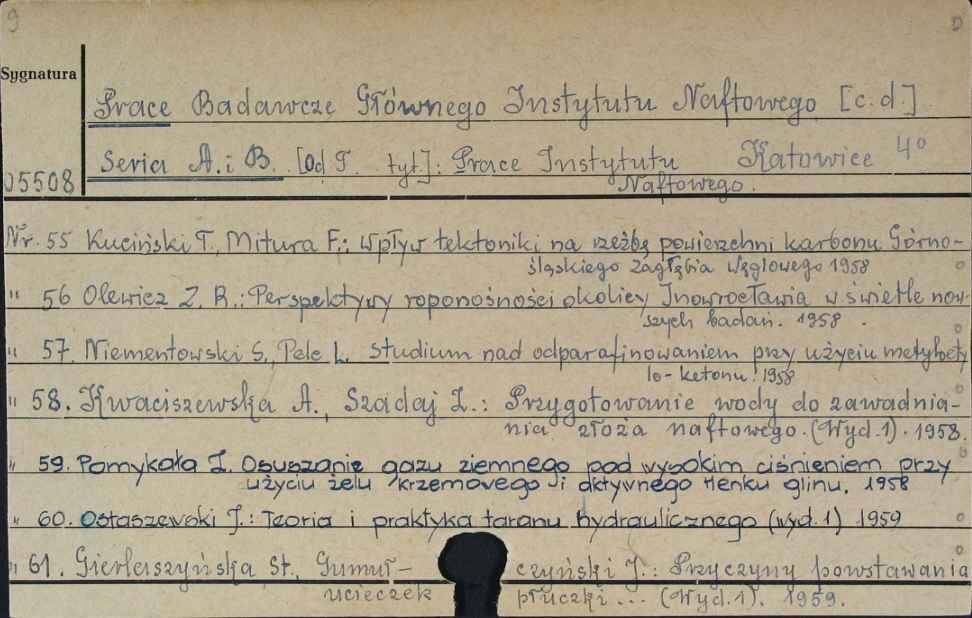 9 D
Sygnatura
Prace Badawcze Głównego Instytutu Naftowego [c.d.]
Seria A. i B. [Od T. tyt.]: Prace Instytutu Katowice 4°
05508 Naftowego.
Nr. 55 Kuciński T., Mitura F.: Wpływ tektoniki na rzeźbę powierzchni karbonu Górno-
śląskiego Zagłębia Węglowego 1958
" 56 Olewicz Z. R.: Perspektywy roponośności okolicy Inowrocławia w świetle now-
szych badań. 1958.
" 57. Niementowski S., Pele L. Studium nad odparafinowaniem przy użyciu metylbety
lo-ketonu. 1958
" 58. Kwaciszewska A., Szadaj Z.: Przygotowanie wody do zawadnia-
nia złoża naftowego. (Wyd. 1). 1958.
" 59. Pomykała Z. Osuszanie gazu ziemnego pod wysokim ciśnieniem przy
użyciu żelu krzemowego i aktywnego tlenku glinu. 1958
" 60. Ostaszewski J.: Teoria i praktyka taranu hydraulicznego (wyd. 1) 1959
" 61. Gierlaszyńska St., Gumuł-czyński J.: Przyczyny powstawania
ucieczek płuczki... (Wyd. 1). 1959.